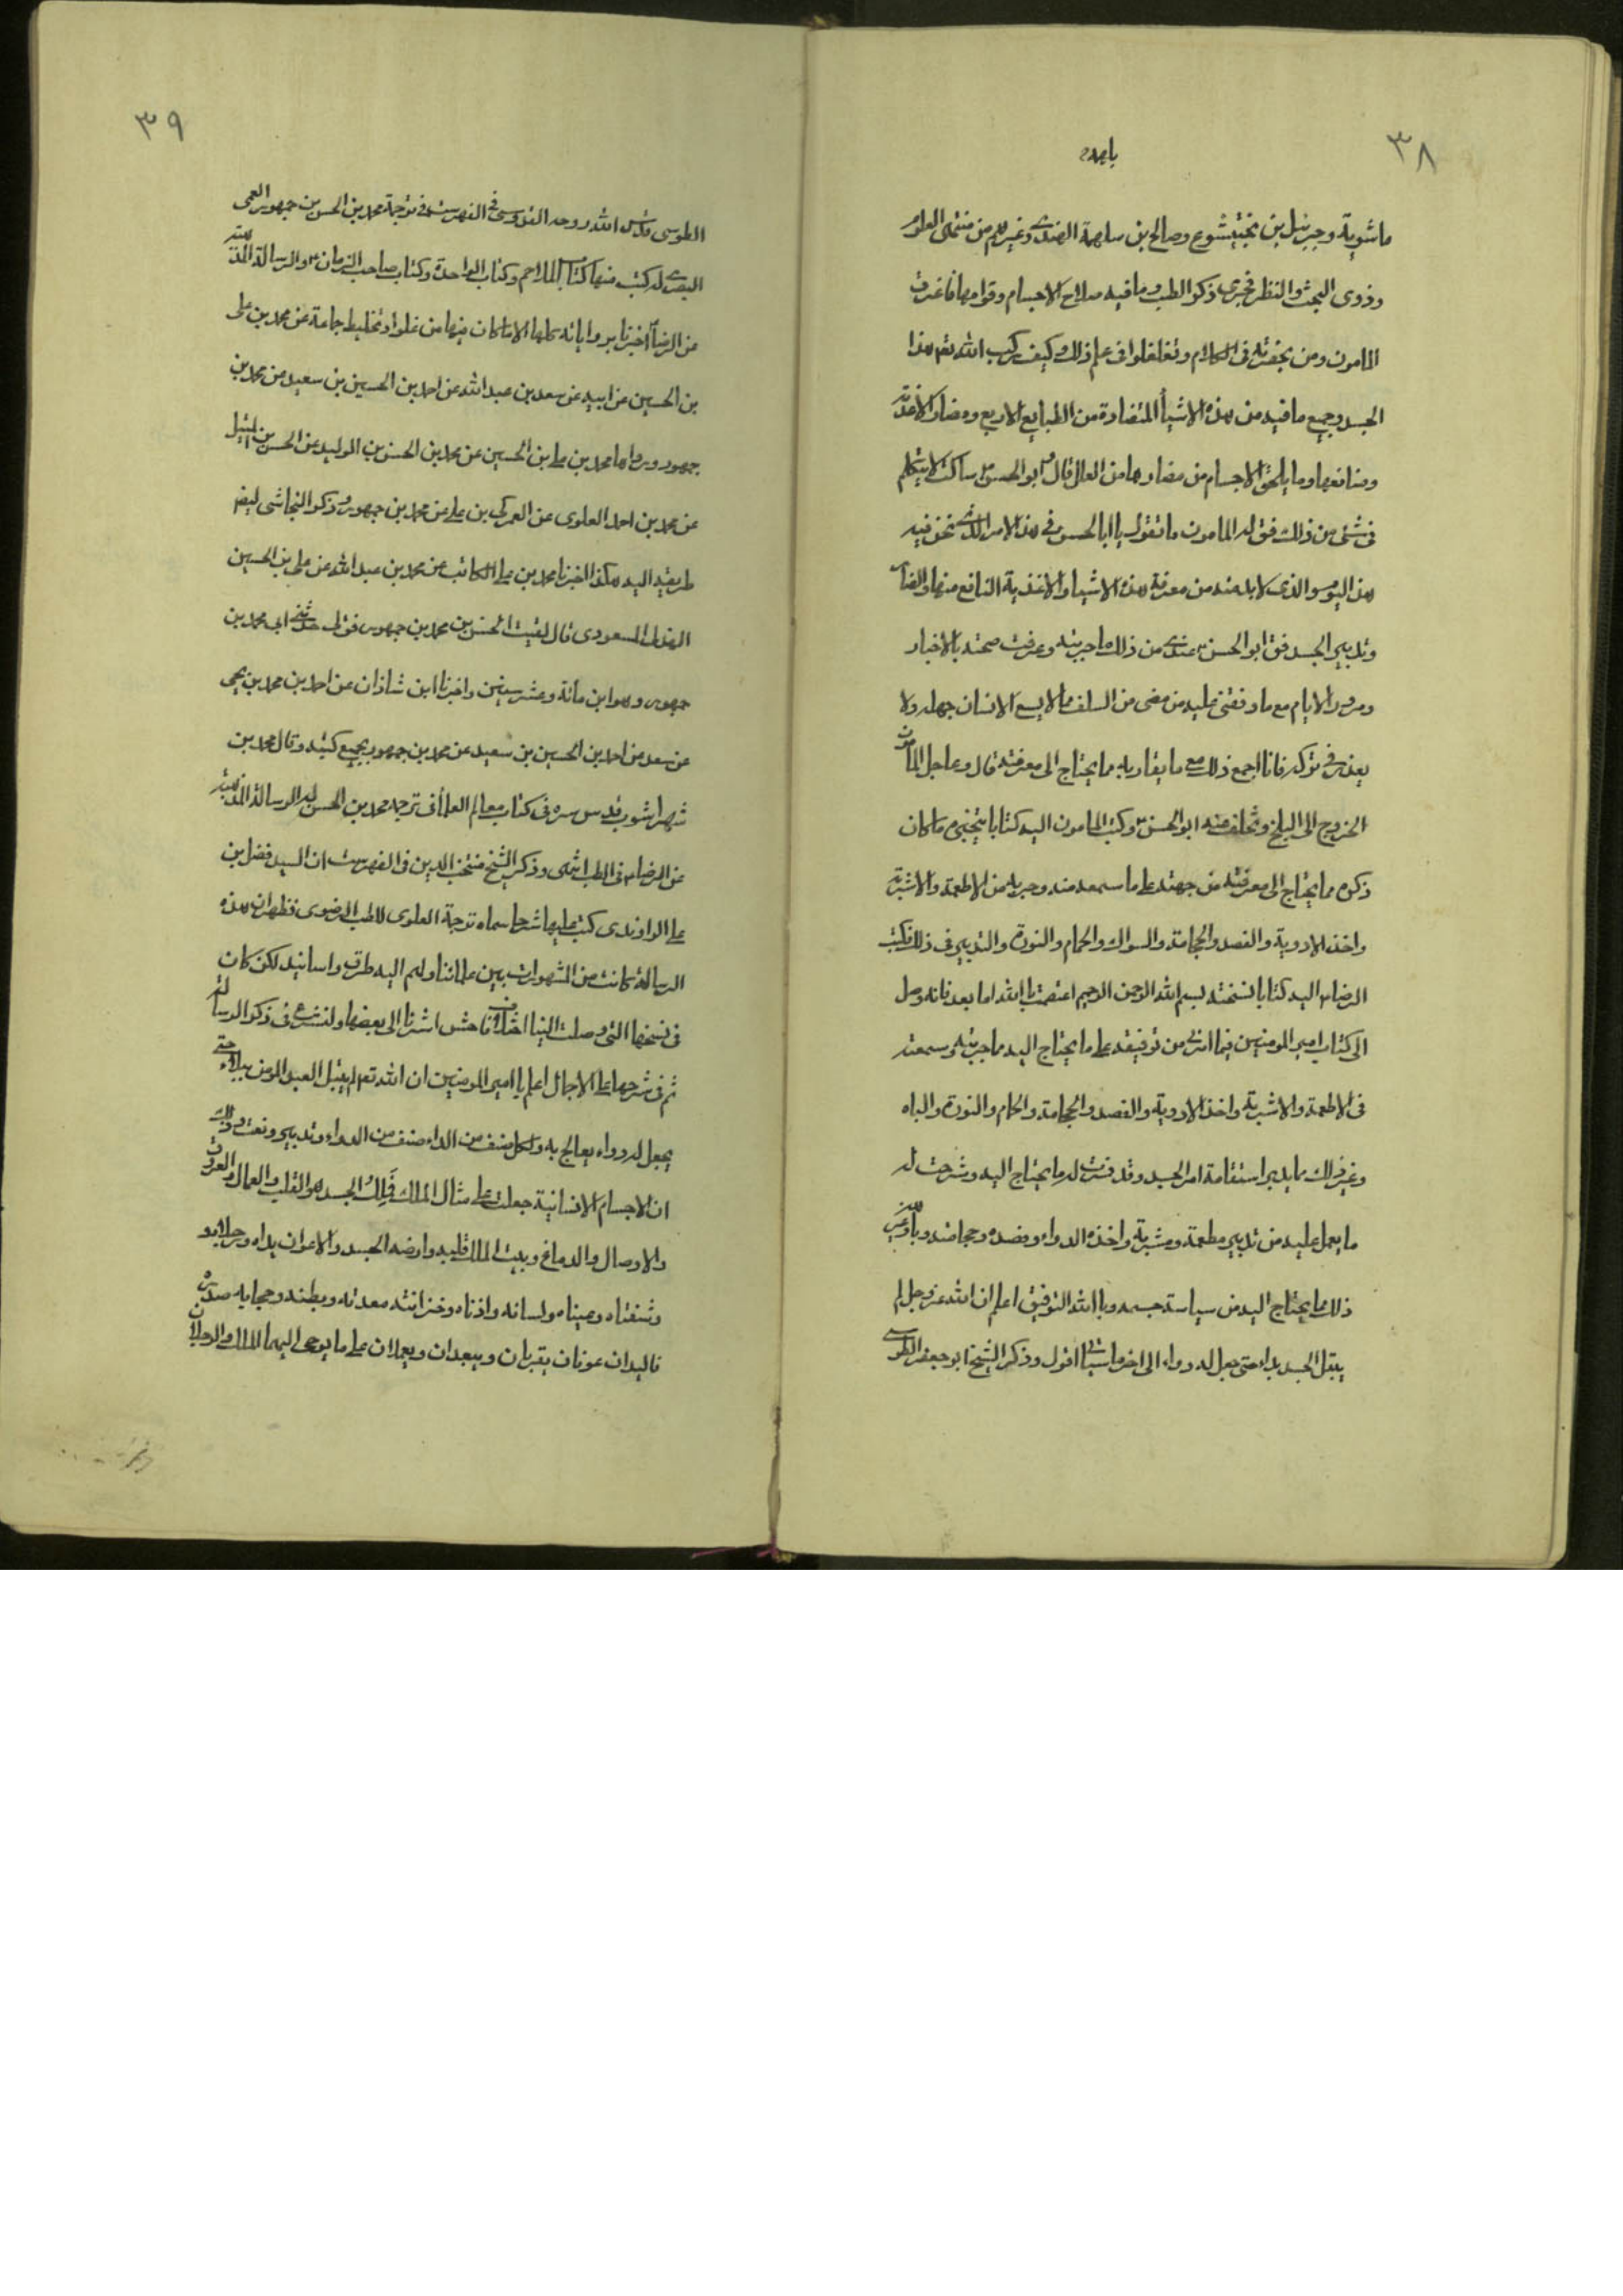 ٣٨
ماسويه وجبرئيل بن بختيشوع وصالح بن سلهمة الهندى وغيرهم من منتحلى العلوم
وذوى البحث والنظر فجرى ذكر الطب وما فيه صلاح الاجسام وقوامها فاغرق
المامون ومن بحضرته فى الكلام وتغلغلوا فى علم ذلك وكيف ركب الله تعم هذا
الجسد وجميع ما فيه من هذه الاشيأ المتضادة من الطبايع الاربع ومضار الاغذية
ومنافعها وما يلحق الاجسام من مضارها من العلل قال وابو الحسن ساكت لا يتكلم
فى شئ من ذلك فق له المامون ما تقول يا ابا الحسن فى هذا الامر الذى نحن فيه
هذا اليوم والذى لابد منه من معرفة هذه الاشيا والاغذية النافع منها والضار
وتدبير الجسد فق ابو الحسن عندى من ذلك ما جربته وعرفت صحته بالاختبار
ومرور الايام مع ما وقفنى عليه من مضى من السلف مما لا يسع الانسان جهله ولا
يعذر فى تركه فانا اجمع ذلك مع ما يقاربه مما يحتاج الى معرفته قال وعاجل المامون
الخروج الى البلخ وتخلف عنه ابو الحسن وكتب المامون اليه كتابا يتنجزه ما كان
ذكره مما يحتاج الى معرفته من جهته على ما سمعه منه وجربه من الاطعمة والاشربة
واخذ الادوية والفصد والحجامة والسواك والحمام والنورة والتدبير فى ذلك فكتب
الرضا اليه كتابا نسخته بسم الله الرحمن الرحيم اعتصمت بالله اما بعد فانه وصل
الى كتاب امير المومنين فيما امرنى من توقيفه على ما يحتاج اليه مما جربته وسمعته
فى الاطعمة والاشربة واخذ الادوية والفصد والحجامة والحمام والنورة والباه
وغير ذلك مما يدبر استقامة امر الجسد وقد فسرت له ما يحتاج اليه وشرحت له
ما يعمل عليه من تدبير مطعمه ومشربه واخذه الدواء وفصده وحجامته وباهه وغير
ذلك مما يحتاج اليه من سياسة جسمه وبالله التوفيق اعلم ان الله عز وجل لم
يبتل الجسد بداء حتى جعل له دواء الى اخر ما سياتى اقول وذكر الشيخ ابو جعفر الطوسى
٣٩
الطوسى قدس الله روحه القدوسى فى الفهرست فى ترجمة محمد بن الحسن بن جمهور العمى
البصرى له كتب منها كتاب الملاحم وكتاب الواحدة وكتاب صاحب الزمان والرسالة المذهبة
عن الرضا اخبرنا برواياته كلها الا ما كان فيها من غلو او تخليط جماعة عن محمد بن على
بن الحسين عن ابيه عن سعد بن عبد الله عن احمد بن الحسين بن سعيد عن محمد بن
جمهور ورواها محمد بن على بن الحسين عن محمد بن الحسن بن الوليد عن الحسن بن متيل
عن محمد بن احمد العلوى عن العمركى بن على عن محمد بن جمهور وذكر النجاشى ايضا
طريقه اليه هكذا اخبرنا محمد بن على الكاتب عن محمد بن عبد الله عن على بن الحسين
الهذلى المسعودى قال لقيت الحسن بن محمد بن جمهور فق لى حدثنى ابى محمد بن
جمهور وهو ابن مائة وعشر سنين واخبرنا ابن شاذان عن احمد بن محمد بن يحيى
عن سعد عن احمد بن الحسين بن سعيد عن محمد بن جمهور بجميع كتبه وقال محمد بن
شهراشوب قدس سره فى كتاب معالم العلمأ فى ترجمة محمد بن الحسن له الرسالة المذهبة
عن الرضا فى الطب انتهى وذكر الشيخ منتجب الدين فى الفهرست ان السيد فضل بن
على الراوندى كتب عليها شرحا سماه ترجمة العلوى للطب الرضوى فظهر ان هذه
الرسالة كانت من المشهورات بين علمائنا ولهم اليه طرق واسانيد لكن كان
فى نسخها التى وصلت الينا اختلاف فاحش اشرنا الى بعضها ولنشرع فى ذكر الرسالة
ثم فى شرحها على الاجمال اعلم يا امير المومنين ان الله تعم لم يبتل العبد المومن ببلاء حتى
يجعل له دواء يعالج به ولكل صنف من الداء صنف من الدواء وتدبير ونعت وذلك
ان الاجسام الانسانية جعلت على مثال الملك فملك الجسد هو القلب والعمال العروق
والاوصال والدماغ وبيت الملك قلبه وارضه الجسد والاعوان يداه ورجلاه
وشفتاه وعيناه ولسانه واذناه وخزانته معدته وبطنه وحجابه صدره
فاليدان عونان يقربان ويبعدان ويعملان على ما يوحى اليهما الملك والرجلان